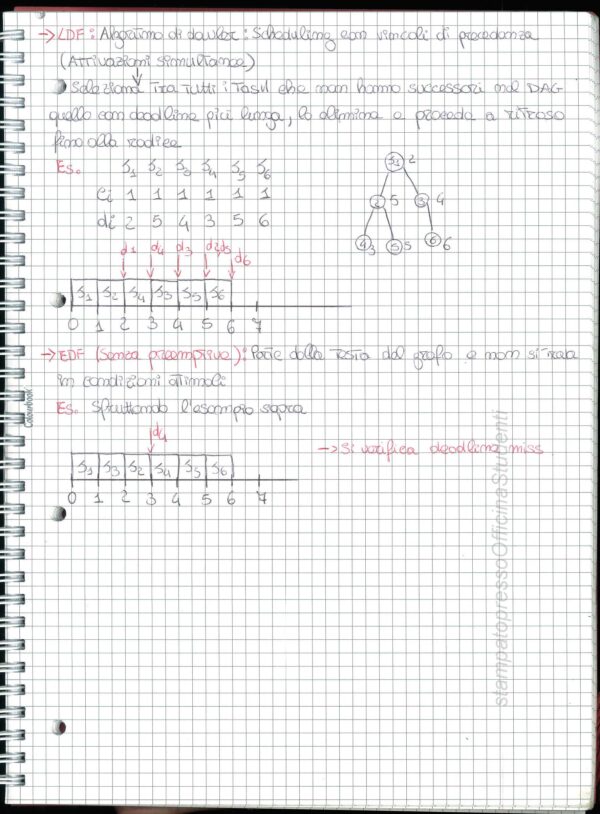 → LDF: Algoritmo di Lawler: Scheduling con vincoli di precedenza
(Attivazioni simultanee)
Seleziona tra tutti i task che non hanno successori nel DAG
quello con deadline più lunga, lo elimina e procede a ritroso
fino alla radice
Es. J1 J2 J3 J4 J5 J6
Ci 1 1 1 1 1 1
di 2 5 4 3 5 6
J1 2
2 5 3 4
4 3 5 5 6 6
d1 d4 d3 d2,d5 d6
J1 J2 J4 J3 J5 J6
0 1 2 3 4 5 6 7
→ EDF (senza preemptive): Parte dalla testa del grafo e non si trova
in condizioni ottimali
Es. Sfruttando l'esempio sopra
d4
J1 J3 J2 J4 J5 J6
0 1 2 3 4 5 6 7
→ Si verifica deadline miss
Colourbook
stampatopressoOfficinaStudenti